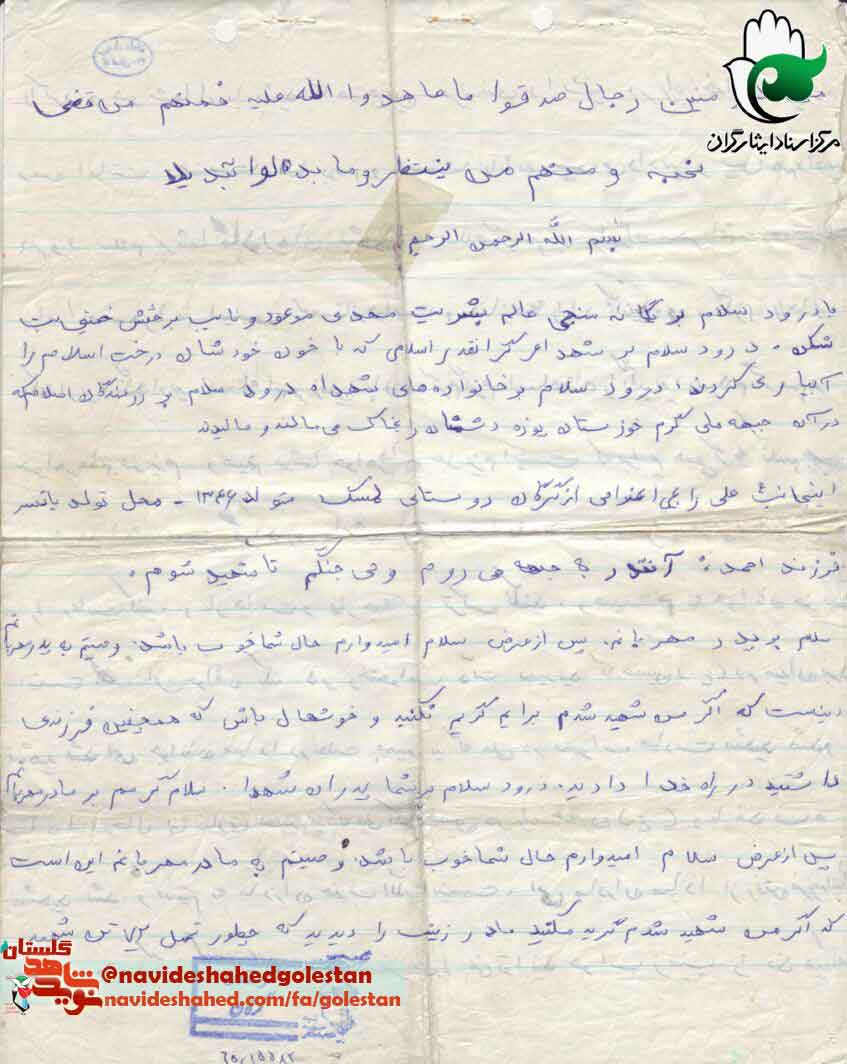 مرکز اسناد ایثارگران
من المؤمنین رجال صدقوا ما عاهدوا الله علیه فمنهم من قضی
نحبه و منهم من ینتظر و ما بدلوا تبدیلا
بسم الله الرحمن الرحیم
با درود سلام بر یگانه منجی عالم بشریت محدی موعود و نایب برحقش خمینی بت
شکن. درود سلام بر شهدا گرانقدر اسلامی که با خون خودشان درخت اسلام را
آبیاری کردند، درود سلام بر خانواده‌های شهدا درود سلام بر رزمندگان اسلام که
در آن جبهه‌های گرم خوزستان پوزه دشمنان را بخاک می مالند و مالیدند
اینجانب علی رجبی اعزامی از گرگان روستای لمسک متولد ۱۳۴۶ - محل تولد بالتسر
فرزند احمد: آنقدر به جبهه می روم و می جنگم تا شهید شوم.
سلام بر پدر مهربانم. پس از عرض سلام امیدوارم حال شما خوب باشد. وصیتم به پدر مهربانم
اینست که اگر من شهید شدم برایم گریم نکنید و خوشحال باش که همچنین فرزندی
داشتید در راه خدا دادید. درود سلام بر شما پدران شهدا. سلام گرمم بر مادر مهربانم
پس از عرض سلام امیدوارم حال شما خوب باشد. وصیتم به مادر مهربانم این است
که اگر من شهید شدم گریه مکنید مادر زینب را دیدید که چطور تحمل ۷۲ تن شهید
گلستان
نوید شاهد
@navideshahedgolestan
navideshahed.com/fa/golestan